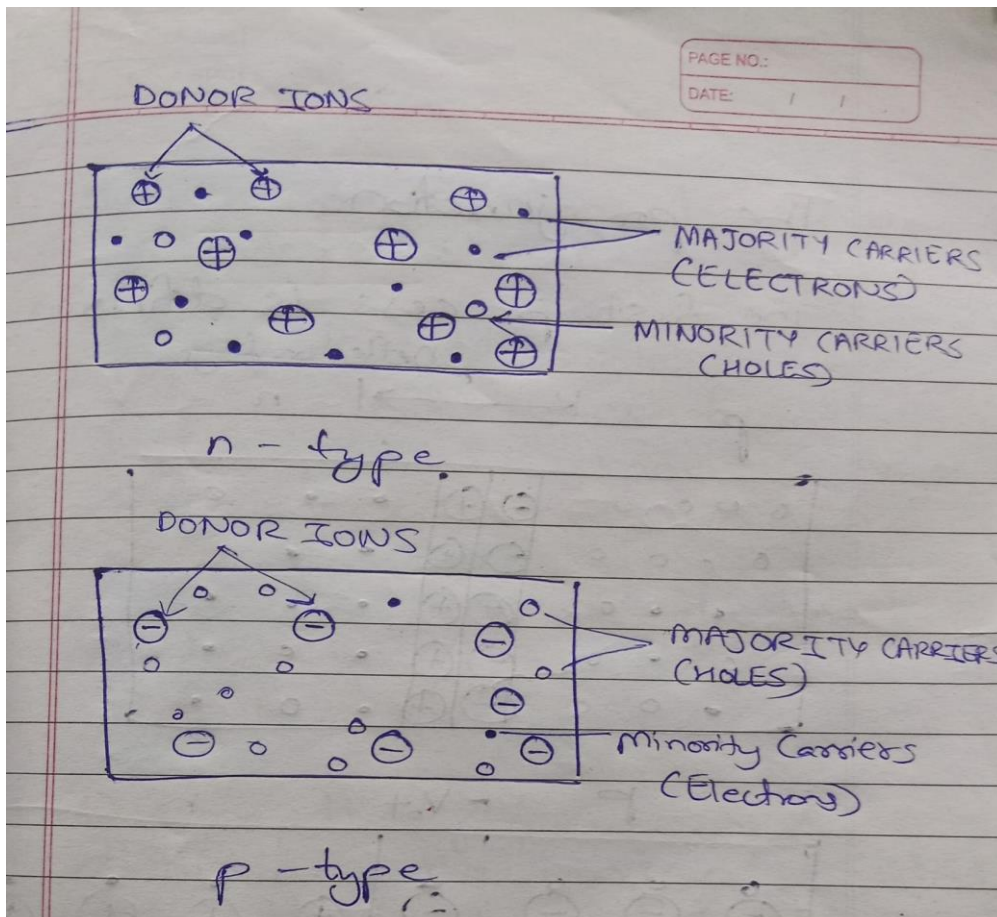 PAGE NO.:
DATE: / /
DONOR IONS
MAJORITY CARRIERS
(ELECTRONS)
MINORITY CARRIERS
(HOLES)
n - type
DONOR IONS
MAJORITY CARRIERS
(HOLES)
Minority Carriers
(Electrons)
p - type